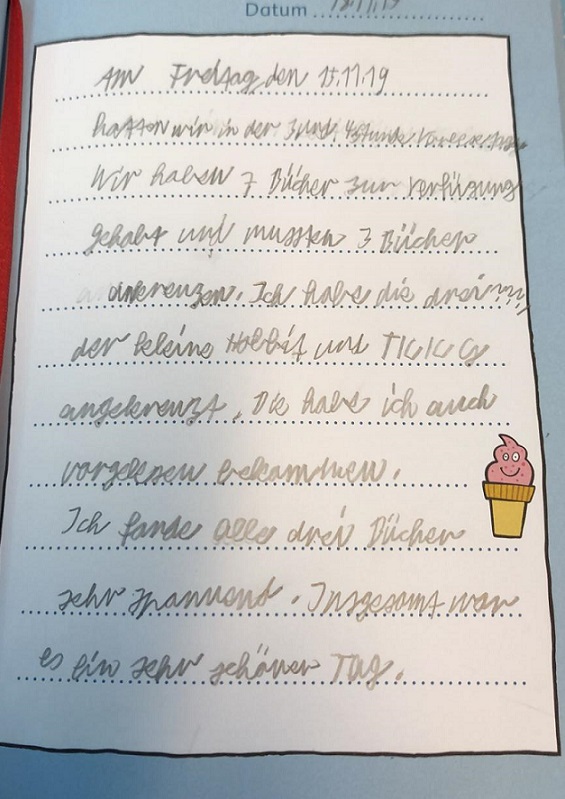 Datum 18.11.19
Am Freitag den 15.11.19
hatten wir in der 3 und. 4 stunde
Wir haben 7 Bücher zur verfügung
gehabt und mussten 3 Bücher
ankreuzen. Ich habe die drei ???,
der kleine Hobbit und
angekreuzt. Die habe ich auch
vorgelesen bekommen.
Ich fande alle drei Bücher
sehr spannend. Insgesamt war
es ein sehr schöner Tag.